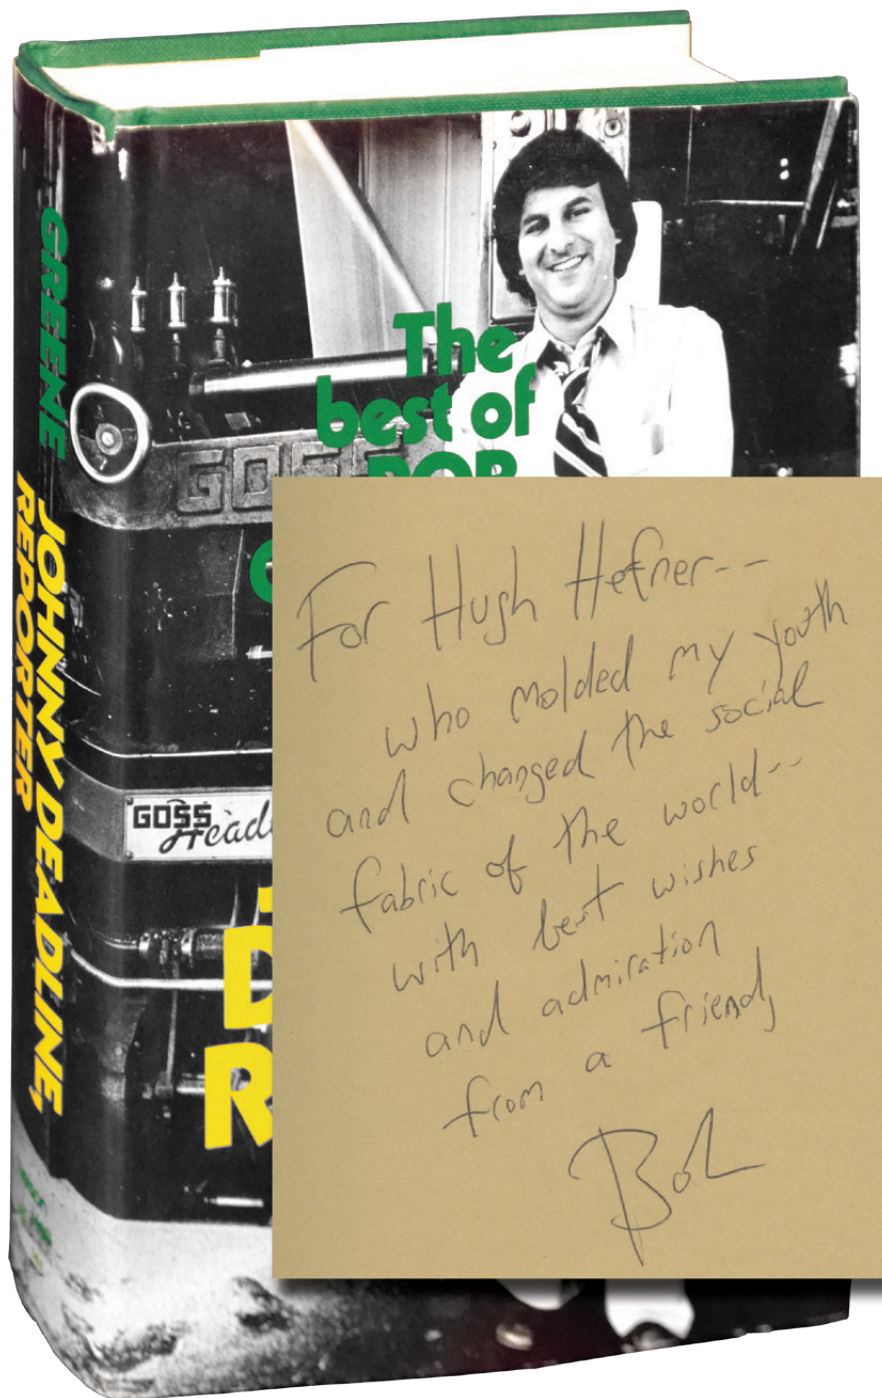 GREENE
JOHNNY DEADLINE,
REPORTER
The
best of
BOB
GOSS
GOSS
For Hugh Hefner--
who molded my youth
and changed the social
fabric of the world--
with best wishes
and admiration
from a friend,
Bob